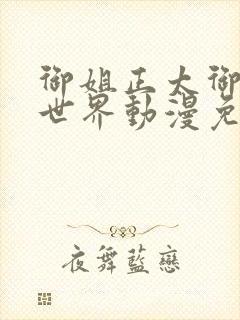 御姐正太御
世界動漫免
夜舞藍戀